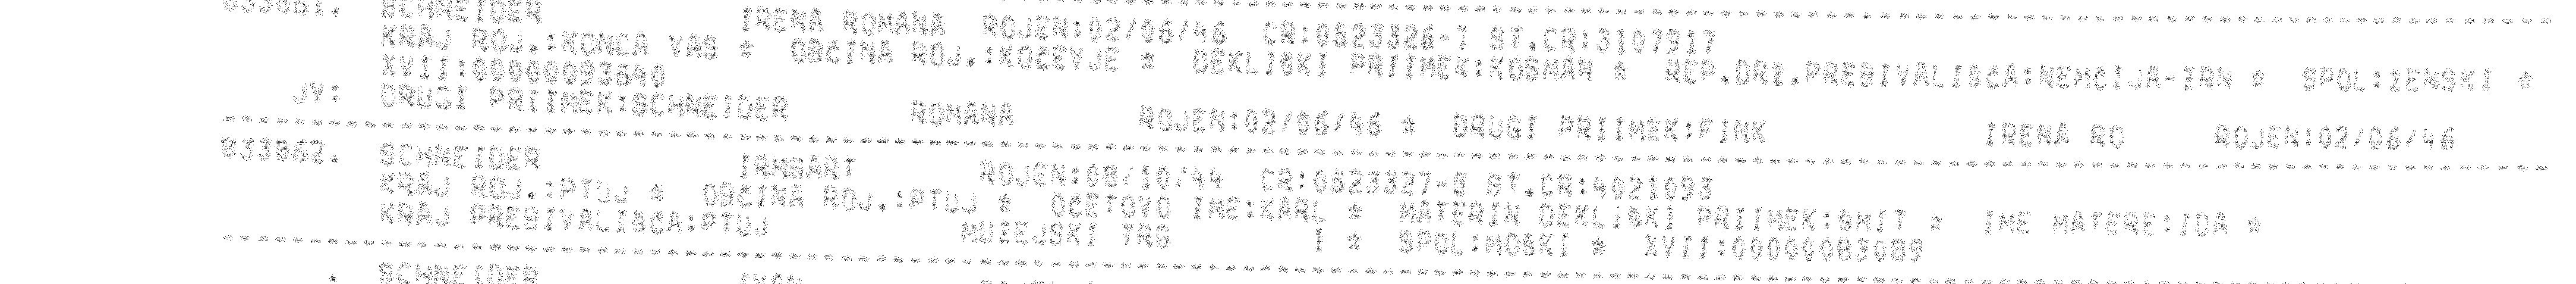 033861. SCHNEIDER IRENA ROMANA ROJEN:02/06/46 CR:0823326-7 ST.CR:3107917
KRAJ ROJ.:KONCA VAS * OBČINA ROJ.:KOČEVJE * DEKLIŠKI PRIIMEK:KOSMAN * REP.DRŽ.PREBIVALIŠČA:NEMČIJA-ZRN * SPOL:ŽENSKI *
XVII:00000093540
JV: DRUGI PRIIMEK:SCHNEIDER ROMANA ROJEN:02/06/46 * DRUGI PRIIMEK:FINK IRENA RO ROJEN:02/06/46
033862. SCHNEIDER IRMGART ROJEN:08/10/44 CR:0823327-8 ST.CR:4021093
KRAJ ROJ.:PTUJ * OBČINA ROJ.:PTUJ * OČETOVO IME:KARL * MATERIN DEKLIŠKI PRIIMEK:ŠMIT * IME MATERE:IDA *
KRAJ PREBIVALIŠČA:PTUJ MUZEJSKI TRG 1 * SPOL:MOŠKI * XVII:00000083089
. SCHNEIDER IVAN